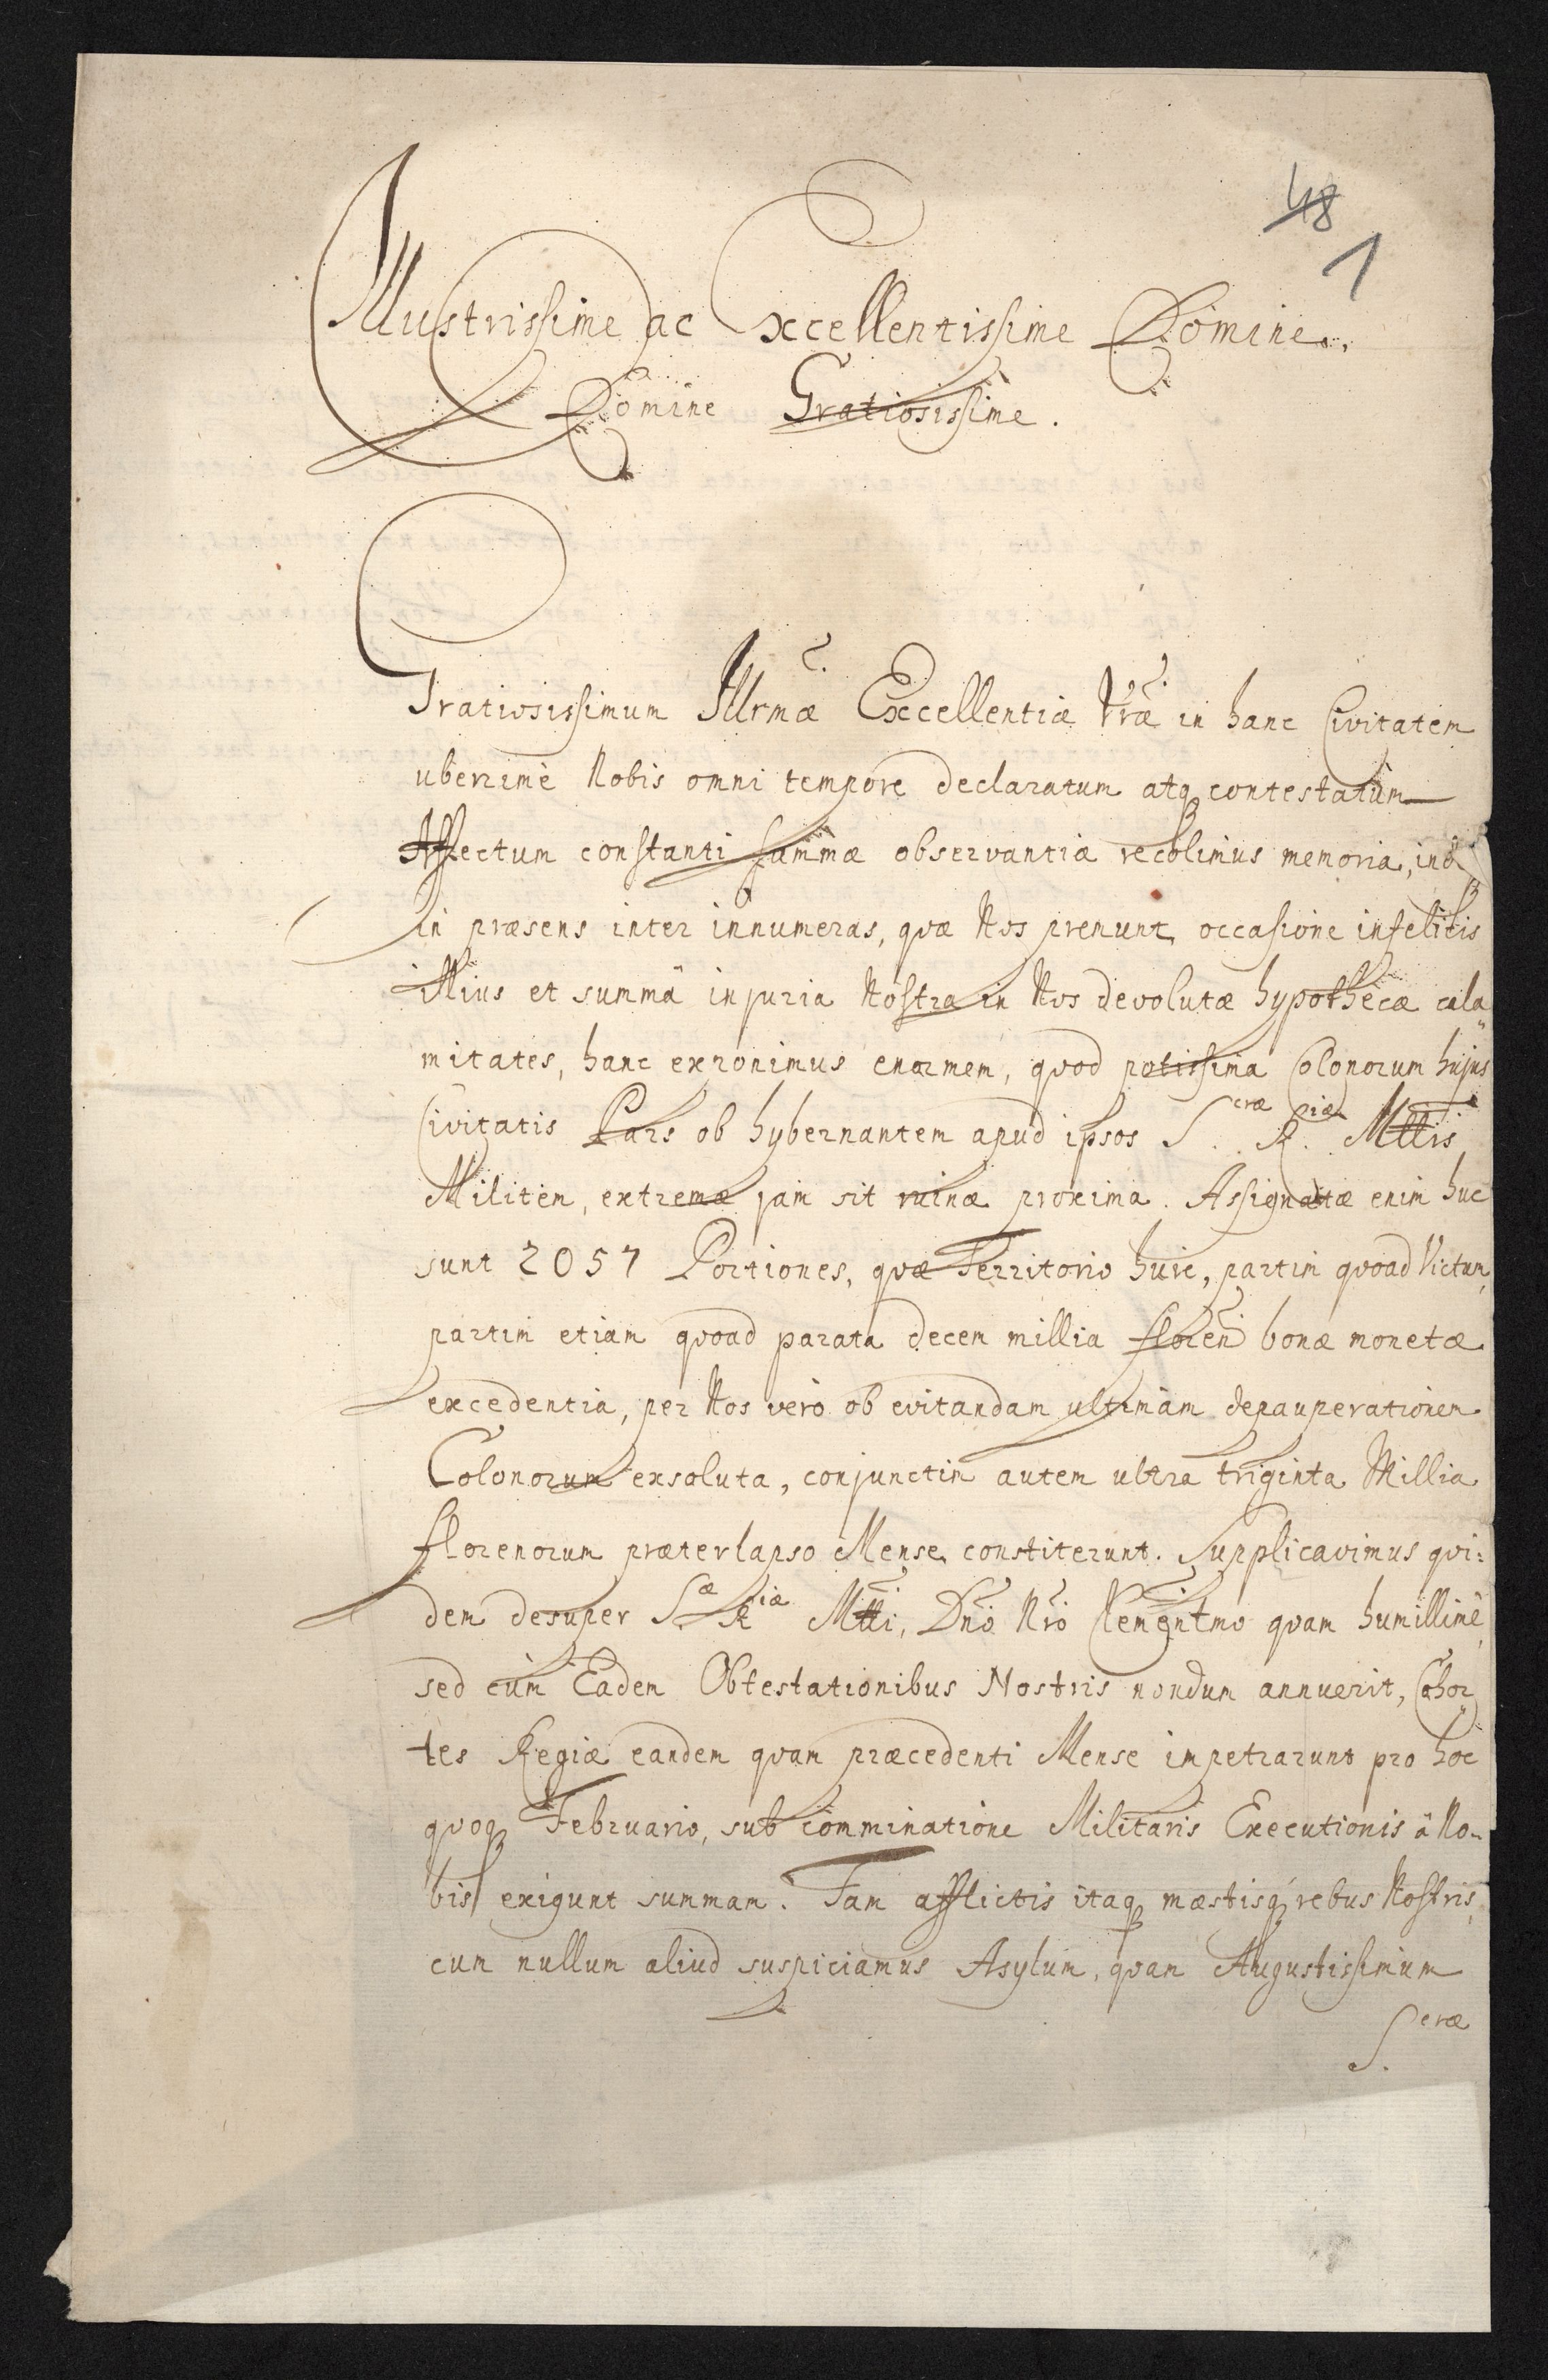 48
1
Illustrissime ac Excellentissime Domine,
Domine Gratiosissime.
Gratiosissimum Illrmæ Excellentiæ Vræ in hanc Civitatem
uberrimè Nobis omni tempore declaratum atq contestatum
Affectum constanti summæ observantiæ recolimus memoria,
In præsens inter innumeras, quæ Nos premunt, occasione infelicis
illius et summâ injuria Nostra in Nos devolutæ hypothecæ cala„
mitates, hanc exponimus enormem, quod potissima Colonorum hujus
Civitatis Pars ob hybernantem apud ipsos S.eræ R.iæ Mttis
Militem, extremæ jam sit ruinæ proxima. Assignatæ enim huc
sunt 2057 Portiones, quæ Territorio huic, partim quoad Victum,
partim etiam quoad parata decem millia floren bonæ monetæ
excedentia, per Nos verò ob evitandam ultimam depauperationem
Colonorum exsoluta, conjunctim autem ultra triginta Millia
florenorum præterlapso Mense constiterunt. Supplicavimus qui:
dem desuper S.æ R.iæ Mtti, Dno Nro Clementmo quam humillimè,
sed cùm Eadem Obtestationibus Nostris nondum annuerit, Cohor„
tes Regiæ eandem quam præcedenti Mense impetrarunt pro hoc
quoq Februario, sub comminatione Militaris Executionis à No„
bis exigunt summam. Tam afflictis itaq mæstisq rebus Nostris,
cum nullum aliud suspiciamus Asylum, quam Augustissimum
S.eræ